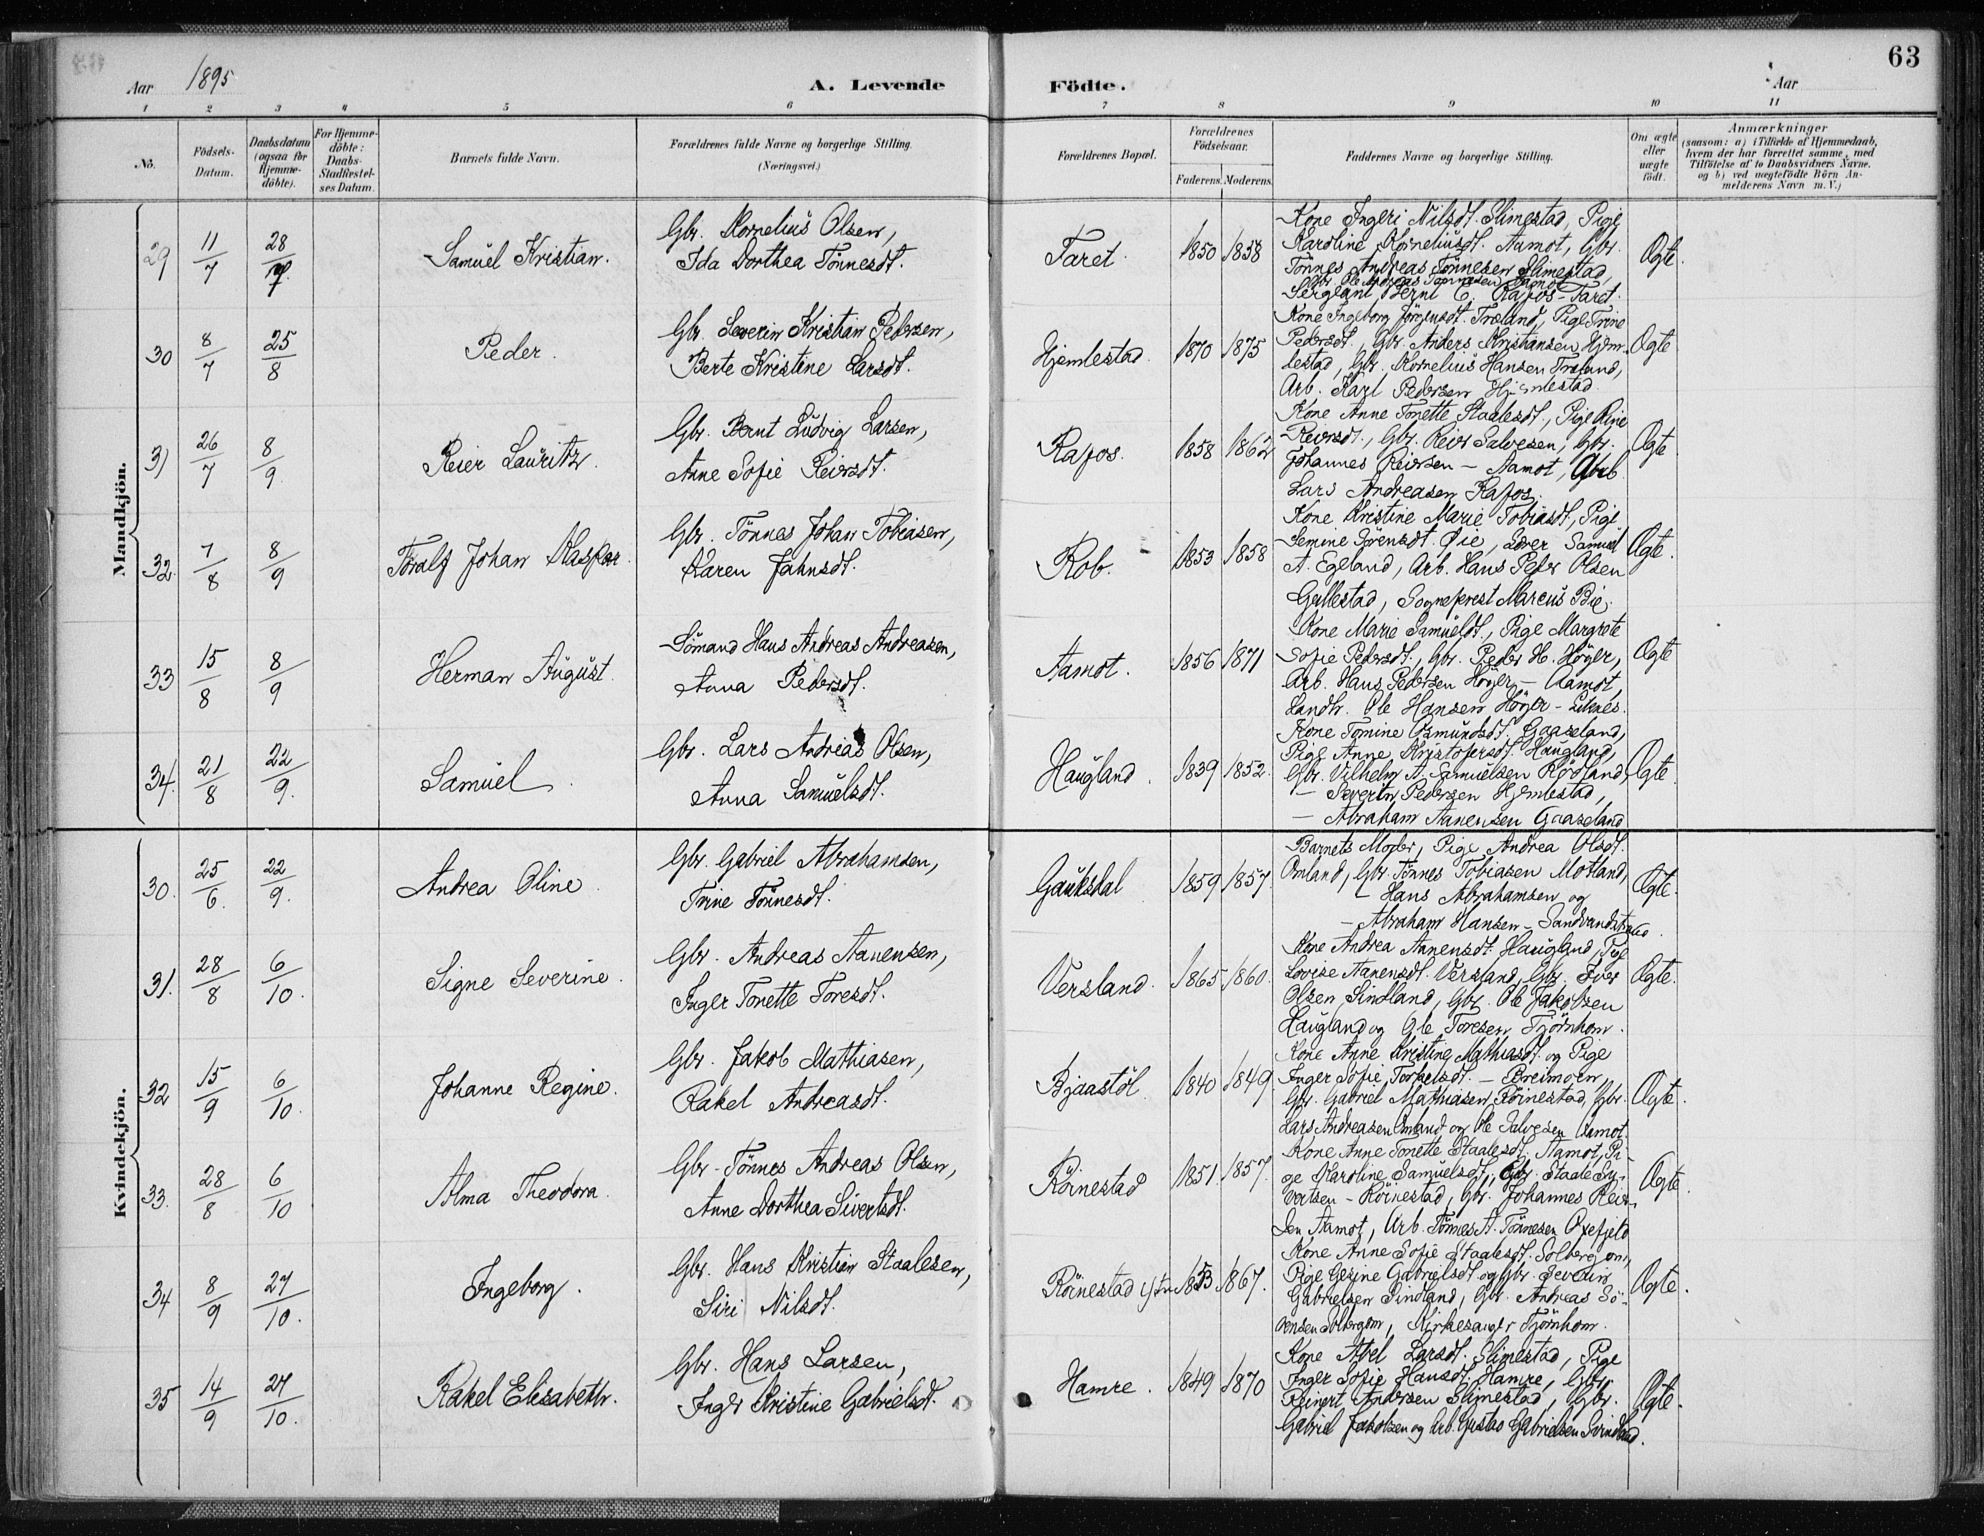 63
Aar 1895
A. Levende Födte.
Aar
1 2 3 4 5 6 7 8 9 10 11
No.
Födsels-Datum.
Daabsdatum (ogsaa for Hjemmedöbte).
For Hjemmedöbte: Daabs-Stadfæstelses Datum.
Barnets fulde Navn.
Forældrenes fulde Navne og borgerlige Stilling. (Næringsvei.)
Forældrenes Bopæl.
Forældrenes Födselsaar.
Faderens. Moderens.
Faddernes Navne og borgerlige Stilling.
Om ægte eller uægte födt.
Anmærkninger
(saasom: a) i Tilfælde af Hjemmedaab,
hvem der har forrettet samme, med
Tilföielse af to Daabsvidners Navne.
og b) ved uægtefödte Börn An-
melderens Navn m. V.)
Mandkjön.
29 11/7 28/7 Samuel Kristian. Gbr. Kornelius Olsen, Ida Dorthea Tönnesdt. Faret. 1850 1858 Ægte.
Kone Ingeri Nilsdt. Slimestad, Pige
Karoline Korneliusdt. Aamot, Gbr.
Tönnes Andreas Tönnesen Slimestad,
Sergeant Bernt C. Rafos - Faret.
30 8/7 25/8 Peder. Gbr. Severin Kristian Pedersen, Berte Kristine Larsdt. Hjemlestad. 1870 1875 Ægte
Kone Ingeborg Jörgensdt. Træland, Pige Trine
Pedersdt., Gbr. Anders Kristiansen Hjem-
lestad, Gbr. Kornelius Hansen Træland,
Arb. Karl Pedersen Hjemlestad.
31 26/7 8/9 Reier Lauritz. Gbr. Bernt Ludvig Larsen, Anne Sofie Reiersdt. Rafos. 1858 1862 Ægte
Kone Anne Tonette Staalesdt., Pige Rine
Reiersdt., Gbr. Reier Salvesen, Gbr.
Johannes Reiersen - Aamot, Arb
Lars Andreasen Rafos.
32. 7/8 8/9 Toralf Johan Kaspar. Gbr. Tönnes Johan Tobiasen, Karen Jahnsdt. Rob. 1853 1858 Ægte.
Kone Kristine Marie Tobiasdt, Pige
Semine Sörensdt. Öie, Lærer Samuel
A. Egeland, Arb. Hans Peder Olsen
Gullestad, Sogneprest Marcus Bie.
33 15/8 8/9 Herman August. Sömand Hans Andreas Andreasen, Anna Pedersdt. Aamot. 1856 1871 Ægte
Kone Marie Samueldt., Pige Margrete
Sofie Pedersdt., Gbr. Peder H. Höyer,
Arb. Hans Pedersen Höyer - Aamot,
Landh. Ole Hansen Höyer - Liknes.
34. 21/8 22/9. Samuel. Gbr. Lars Andreas Olsen, Anna Samuelsdt. Haugland. 1839 1852. Ægte
Kone Tomine Osmundsdt. Gaaseland,
Pige Anne Kristofersdt. Haugland,
Gbr. Vilhelm A. Samuelsen Rödland,
- Severin Pedersen Hjemlestad,
- Abraham Aanensen Gaaseland
Kvindekjön.
30. 25/6. 22/9. Andrea Oline. Gbr. Gabriel Abrahamsen, Trine Tönnesdt. Gauksdal 1859 1857. Ægte.
Barnets Moder, Pige Andrea Olsdt.
Omland, Gbr Tönnes Tobiasen Motland,
- Hans Abrahamsen og
- Abraham Hansen - Sandvand
31. 28/8 6/10. Signe Severine. Gbr. Andreas Aanensen, Inger Tonette Toresdt. Versland. 1865 1860. Ægte.
Kone Andrea Aanensdt. Haugland, Pige
Lovise Aanensdt. Versland, Gbr. Iver
Olsen Sindland, Gbr. Ole Jakobsen
Haugland og Ole Toresen Tjörnhom.
32 15/9 6/10. Johanne Regine. Gbr. Jakob Mathiasen, Rakel Andreasdt. Bjaastöl 1840 1849 Ægte.
Kone Anne Kristine Mathiasdt og Pige
Inger Sofie Torkelsdt. - Breimoen,
Gbr. Gabriel Mathiasen Röinestad, Gbr.
Lars Andreasen Omland og Ole Salvesen Aamot.
33. 28/8 6/10 Alma Theodora. Gbr. Tönnes Andreas Olsen, Anne Dorthea Sivertsdt. Röinestad 1851. 1857. Ægte.
Kone Anne Tonette Staalesdt. Aamot, Pi-
ge Karoline Samuelsdt., Gbr. Staale Sy-
vertsen - Röinestad, Gbr. Johannes Reier-
sen Aamot, Arb. Tönnes A. Tönnesen Oxefjeld
34 8/9 27/10. Ingeborg. Gbr. Hans Kristian Staalesen, Siri Nilsdt. Röinestad ytre 1853 1867. Ægte.
Kone Anne Sofie Staalesdt. Solbergom,
Pige Gesine Gabrielsdt og Gbr. Severin
Gabrielsen Sindland, Gbr. Andreas Sö-
rensen Solbergom, Kirkesanger Tjörnhom.
35 14/9 27/10. Rakel Elisabeth. Gbr. Hans Larsen, Inger Kristine Gabrielsdt. Hamre. 1849 1870 Ægte.
Kone Abel Larsdt. Slimestad, Pige
Inger Sofie Hansdt. Hamre, Gbr.
Reinert Andersen Slimestad, Gbr.
Gabriel Jakobsen og Arb. Gustav Gabrielsen Svindland.